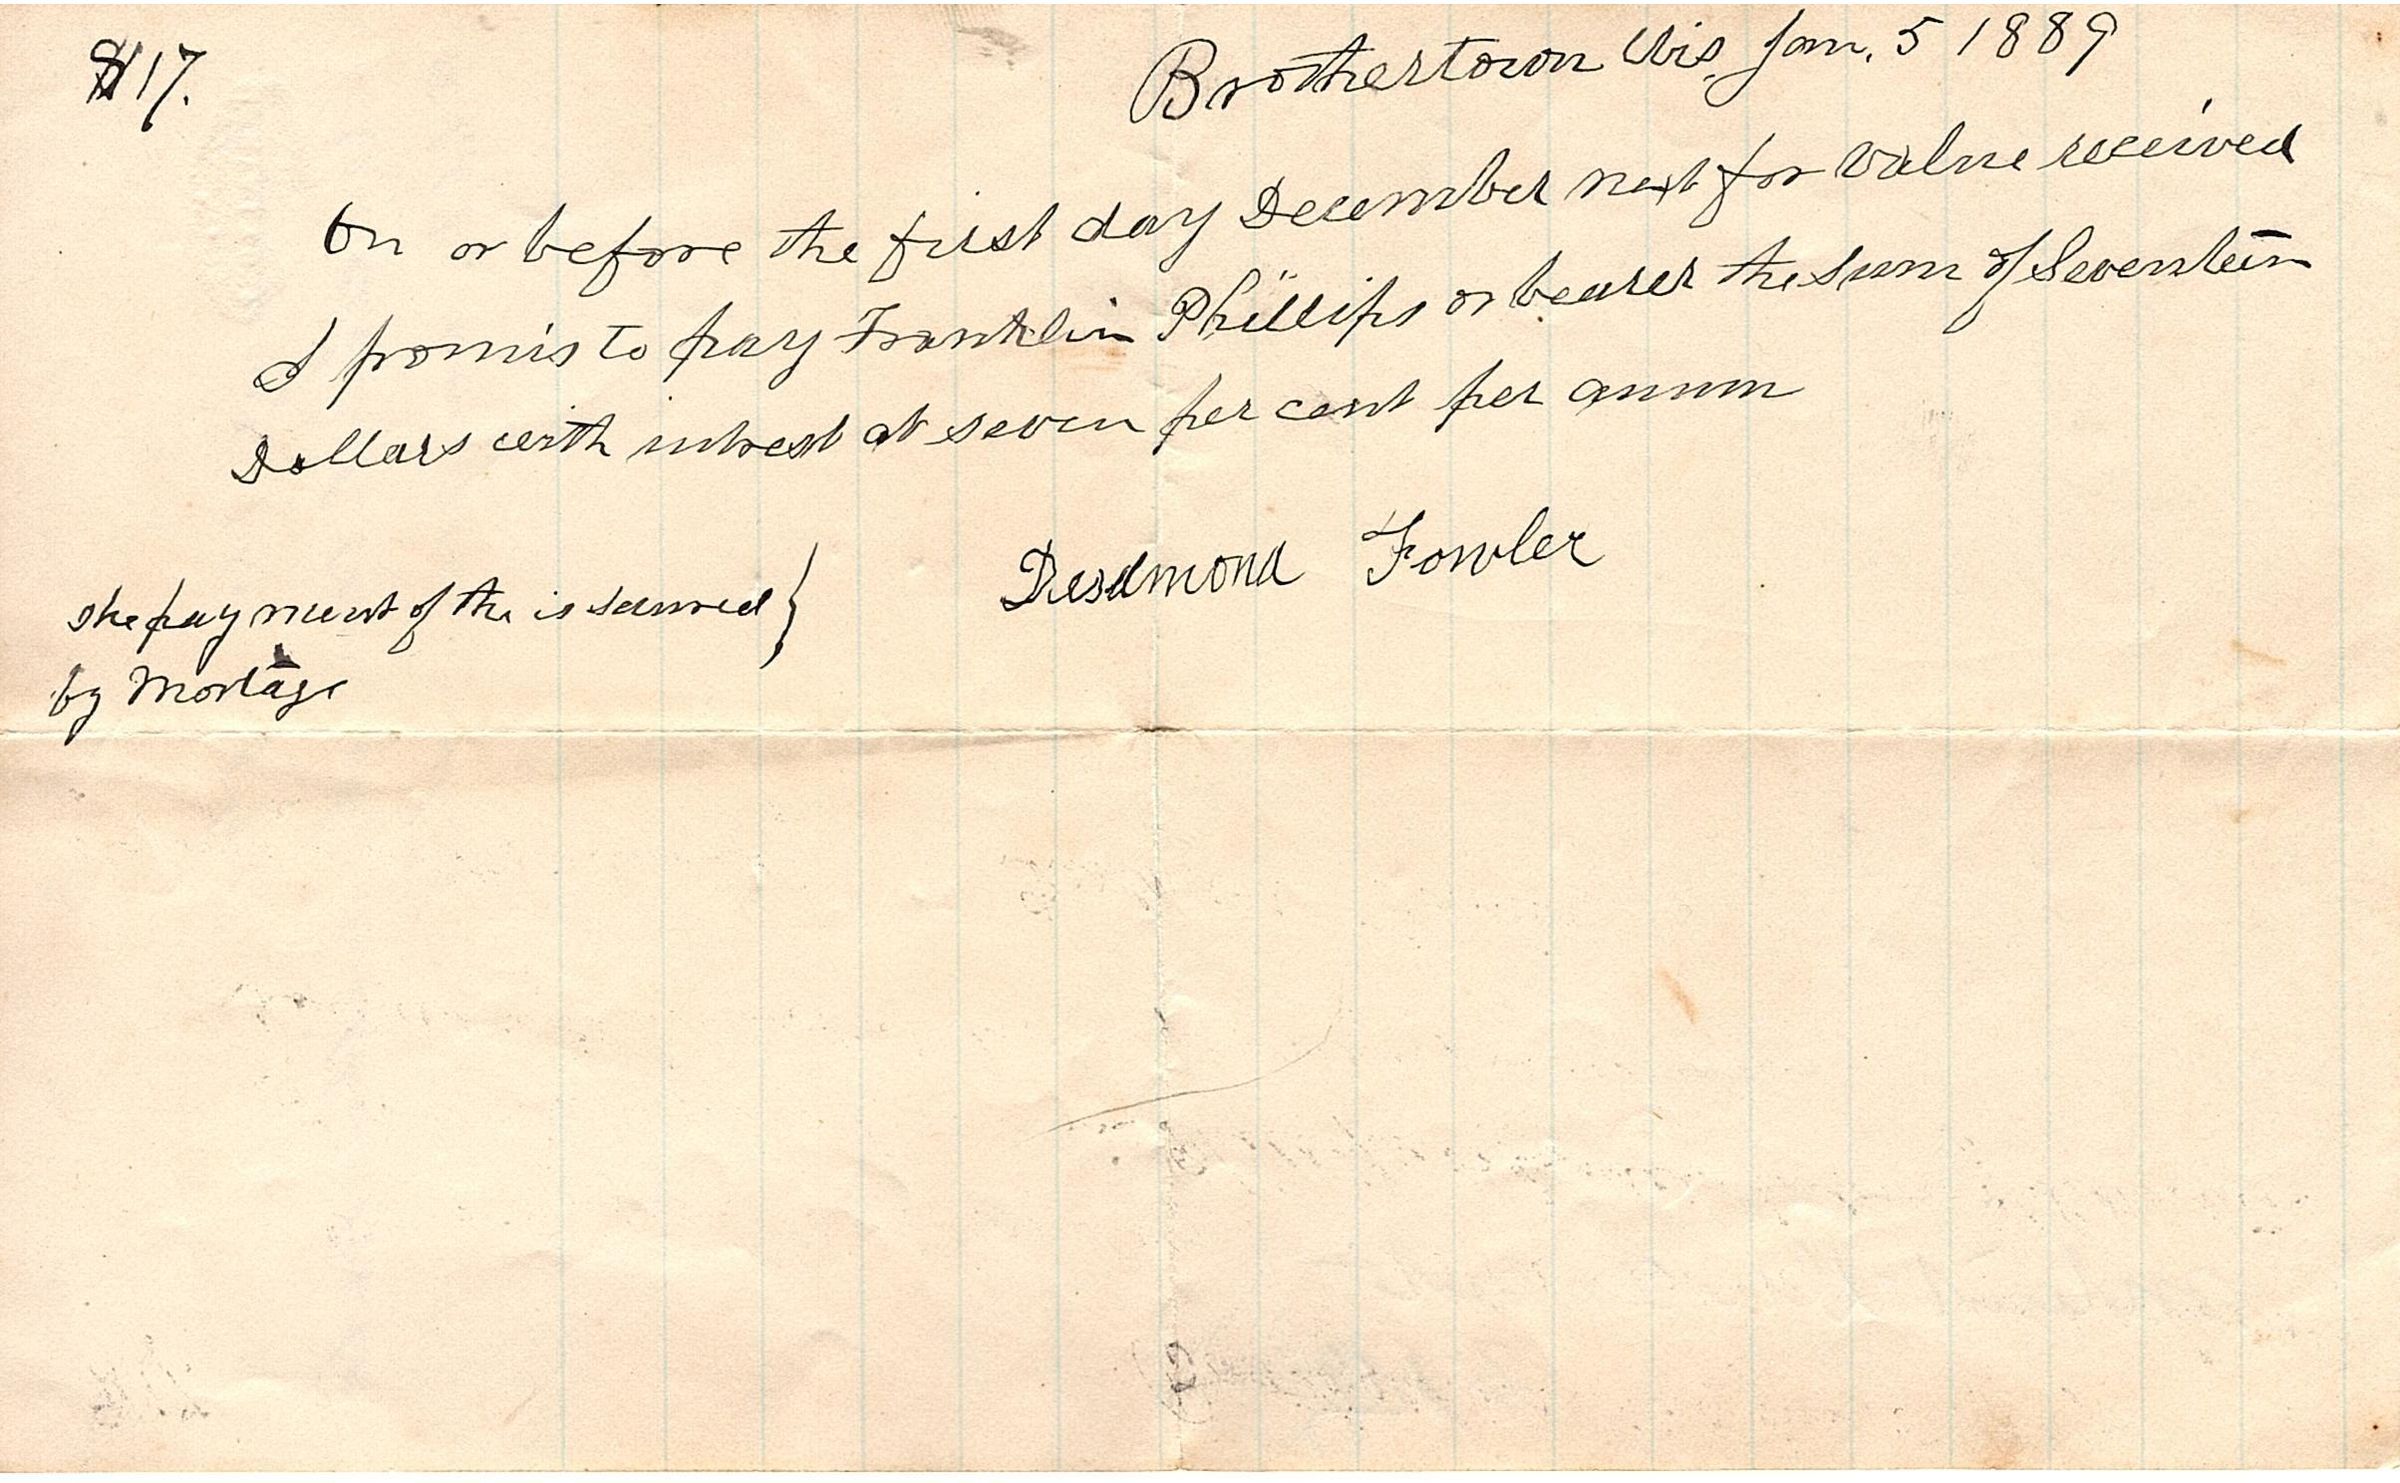 $17.
Brothertown Wis Jan. 5 1889
On or before the first day December next for value received
I promis to pay Franklin Phillips or bearer the sum of Seventeen
Dollars with intrest at seven per cent per annum
Desdmond Fowler
the payment of the is secured }
by Mortage